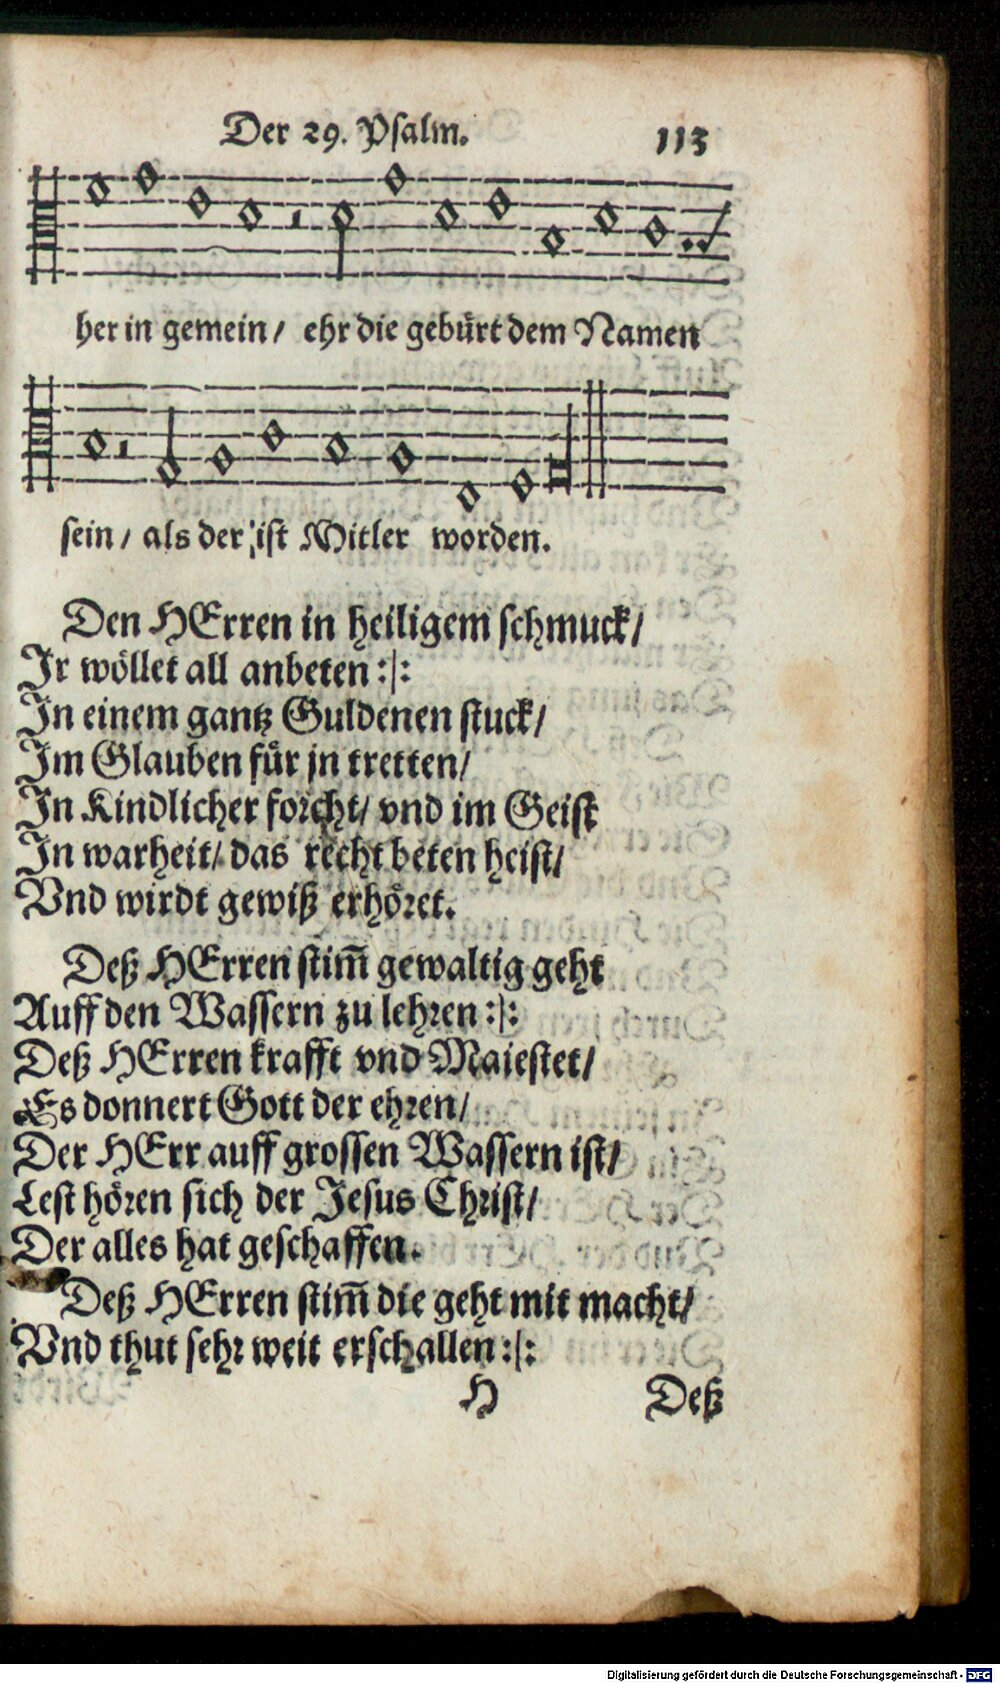 Der 29. Psalm. 113
her in gemein/ ehr die gebürt dem Namen
sein/ als der ist Mitler worden.
Den HErren in heiligem schmuck/
Ir wöllet all anbeten :|:
In einem gantz Guldenen stuck/
Im Glauben für jn tretten/
In Kindlicher forcht/ vnd im Geist
In warheit/ das recht beten heist/
Vnd wirdt gewiß erhöret.
Deß HErren stim̃ gewaltig geht
Auff den Wassern zu lehren :|:
Deß HErren krafft vnd Maiestet/
Es donnert Gott der ehren/
Der HErr auff grossen Wassern ist/
Lest hören sich der Jesus Christ/
Der alles hat geschaffen.
Deß HErren stim̃ die geht mit macht/
Vnd thut sehr weit erschallen :|:
H Deß
Digitalisierung gefördert durch die Deutsche Forschungsgemeinschaft - DFG